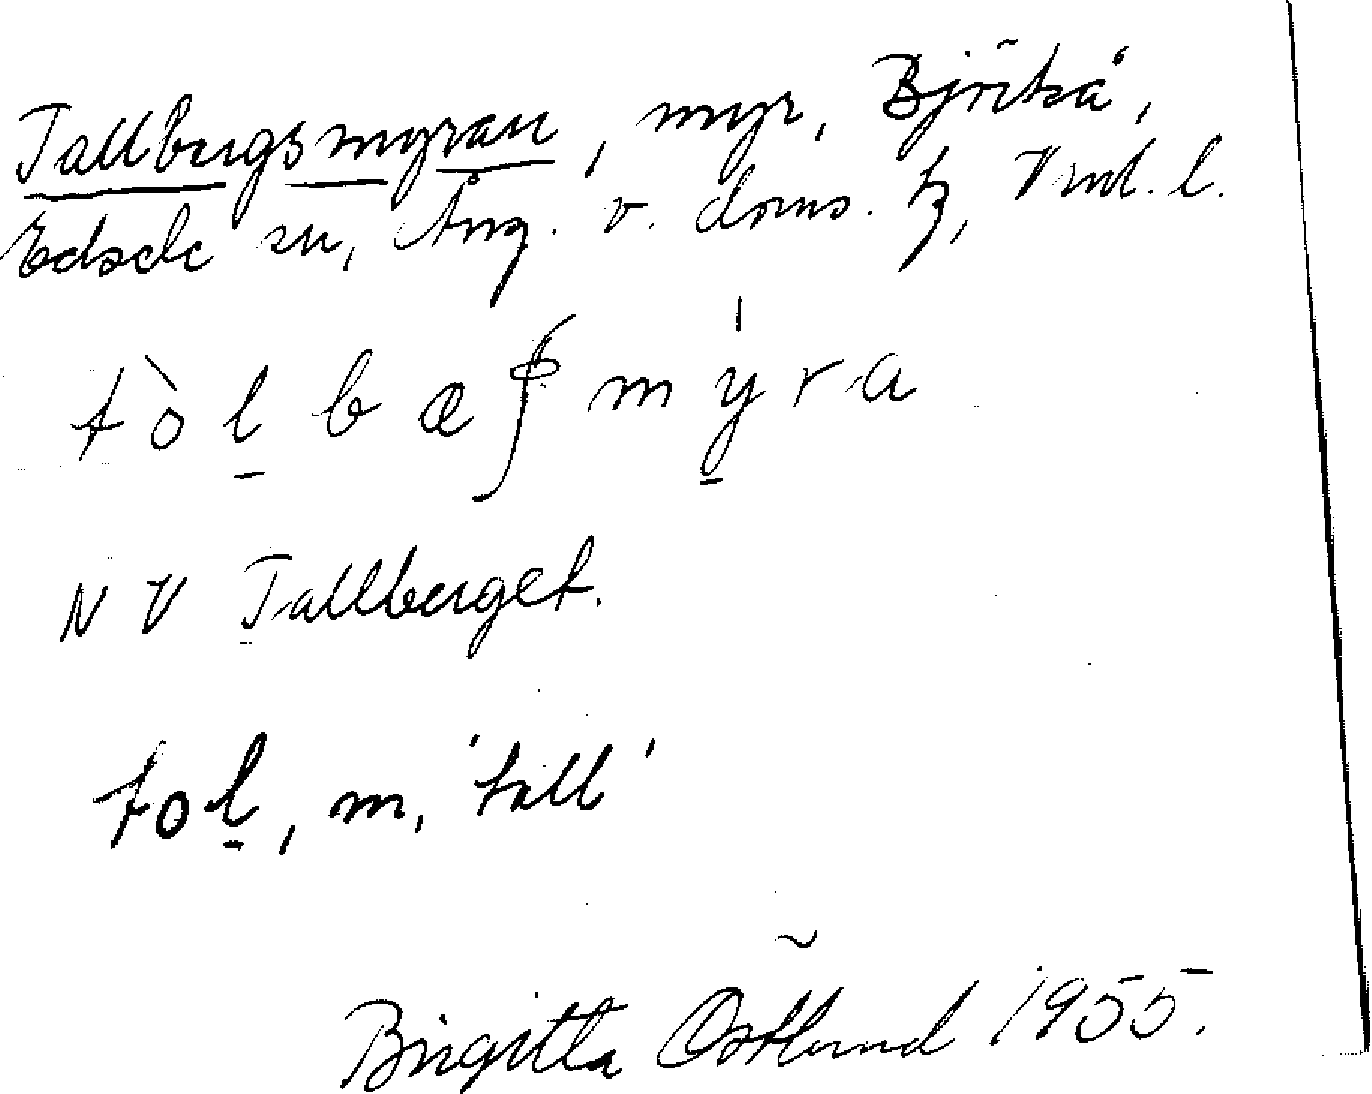 Tallbergsmyran, myr, Björkå,
Edsele sn, Ång. v. doms. tg, Vnl. l.
tòl̠ bæʃ mý̠ra
NV Tallberget.
tol̠, m, 'tall'
Birgitta Östlund 1955.